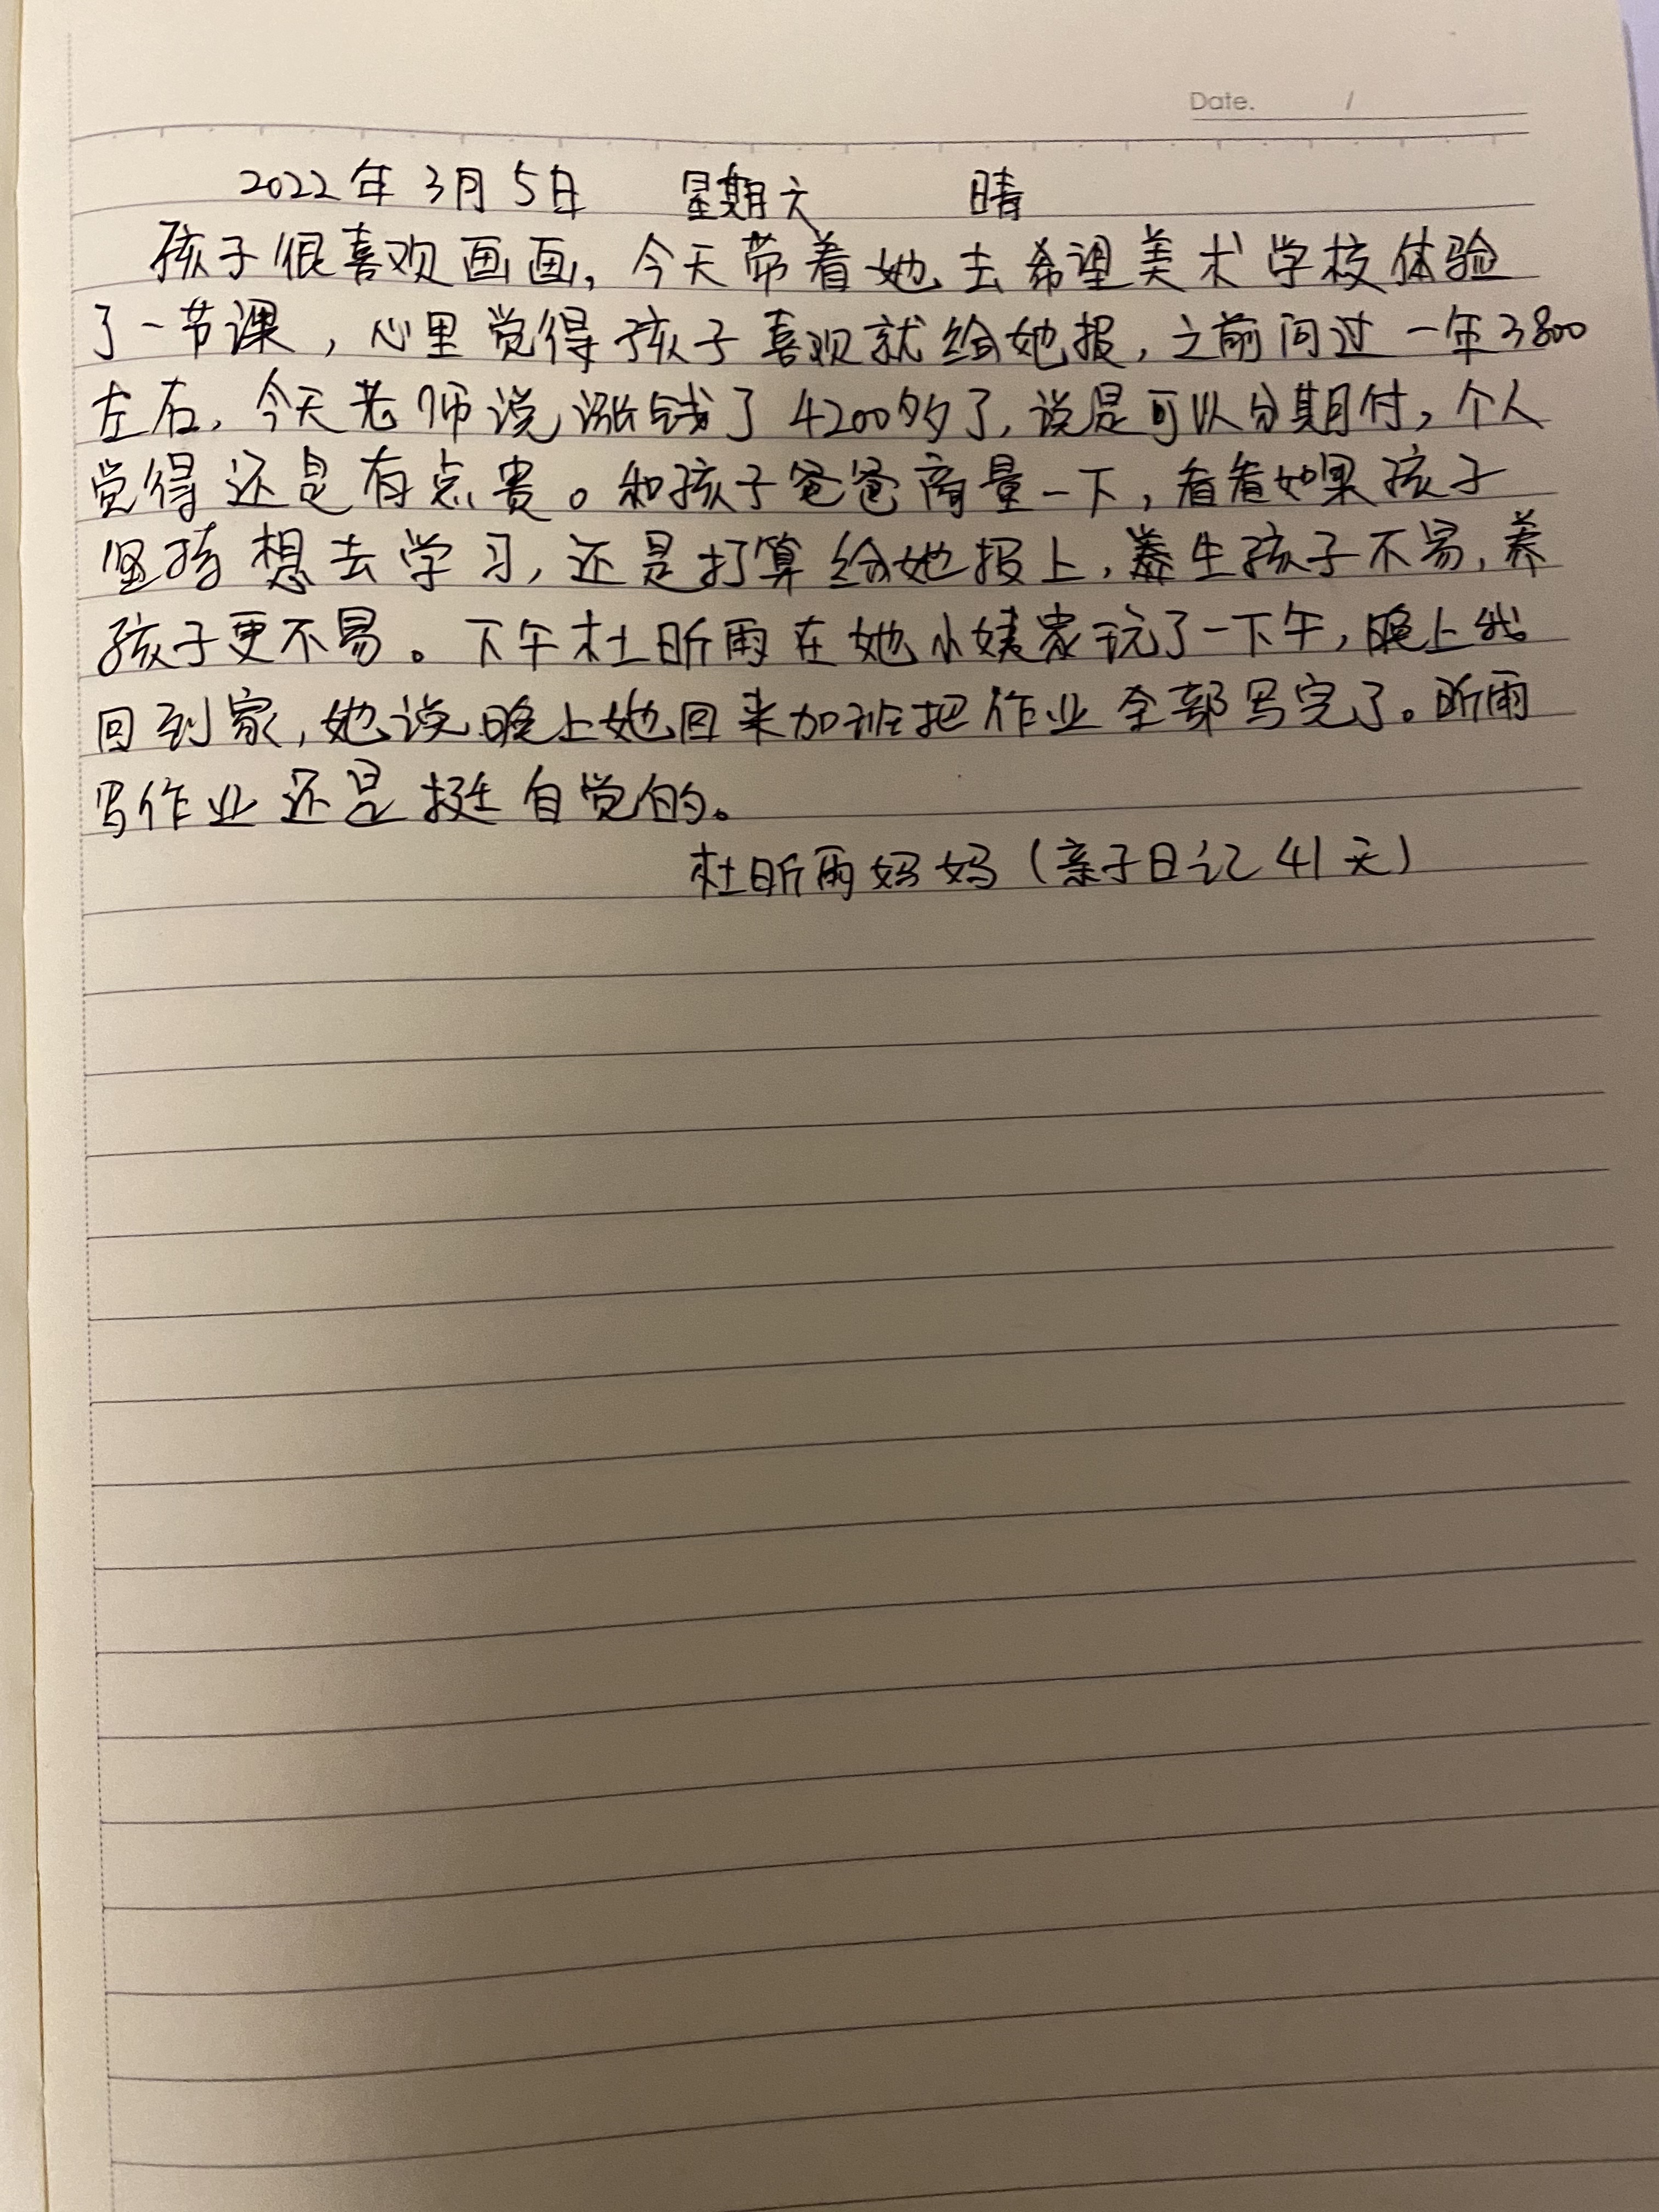 Date. /
2022年3月5日 星期六 晴
孩子很喜欢画画,今天带着她去希望美术学校体验
了一节课,心里觉得孩子喜欢就给她报,之前问过一年3800
左右,今天老师说涨钱了4200多了,说是可以分期付,个人
觉得还是有点贵。和孩子爸爸商量一下,看看如果孩子
坚持想去学习,还是打算给她报上,养生孩子不易,养
孩子更不易。下午杜昕雨在她小姨家玩了一下午,晚上我
回到家,她说晚上她回来加班把作业全部写完了。昕雨
写作业还是挺自觉的。
杜昕雨妈妈(亲子日记41天)